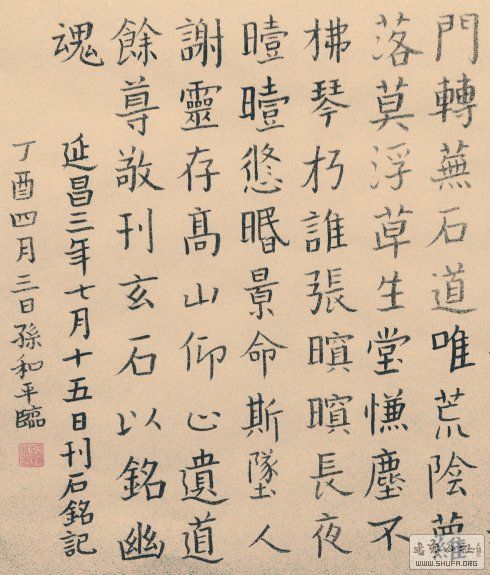 門轉蕪石道唯荒陰
落莫浮草生堂慊塵不
柫琴朽誰張暝暝長夜
曀曀景命斯墜人
謝靈存髙山仰心遺道
餘尊敬刊玄石以銘幽
魂
延昌三年七月十五日刊石銘記
丁酉四月三日孫和平臨
WWW.SHUFA.ORG